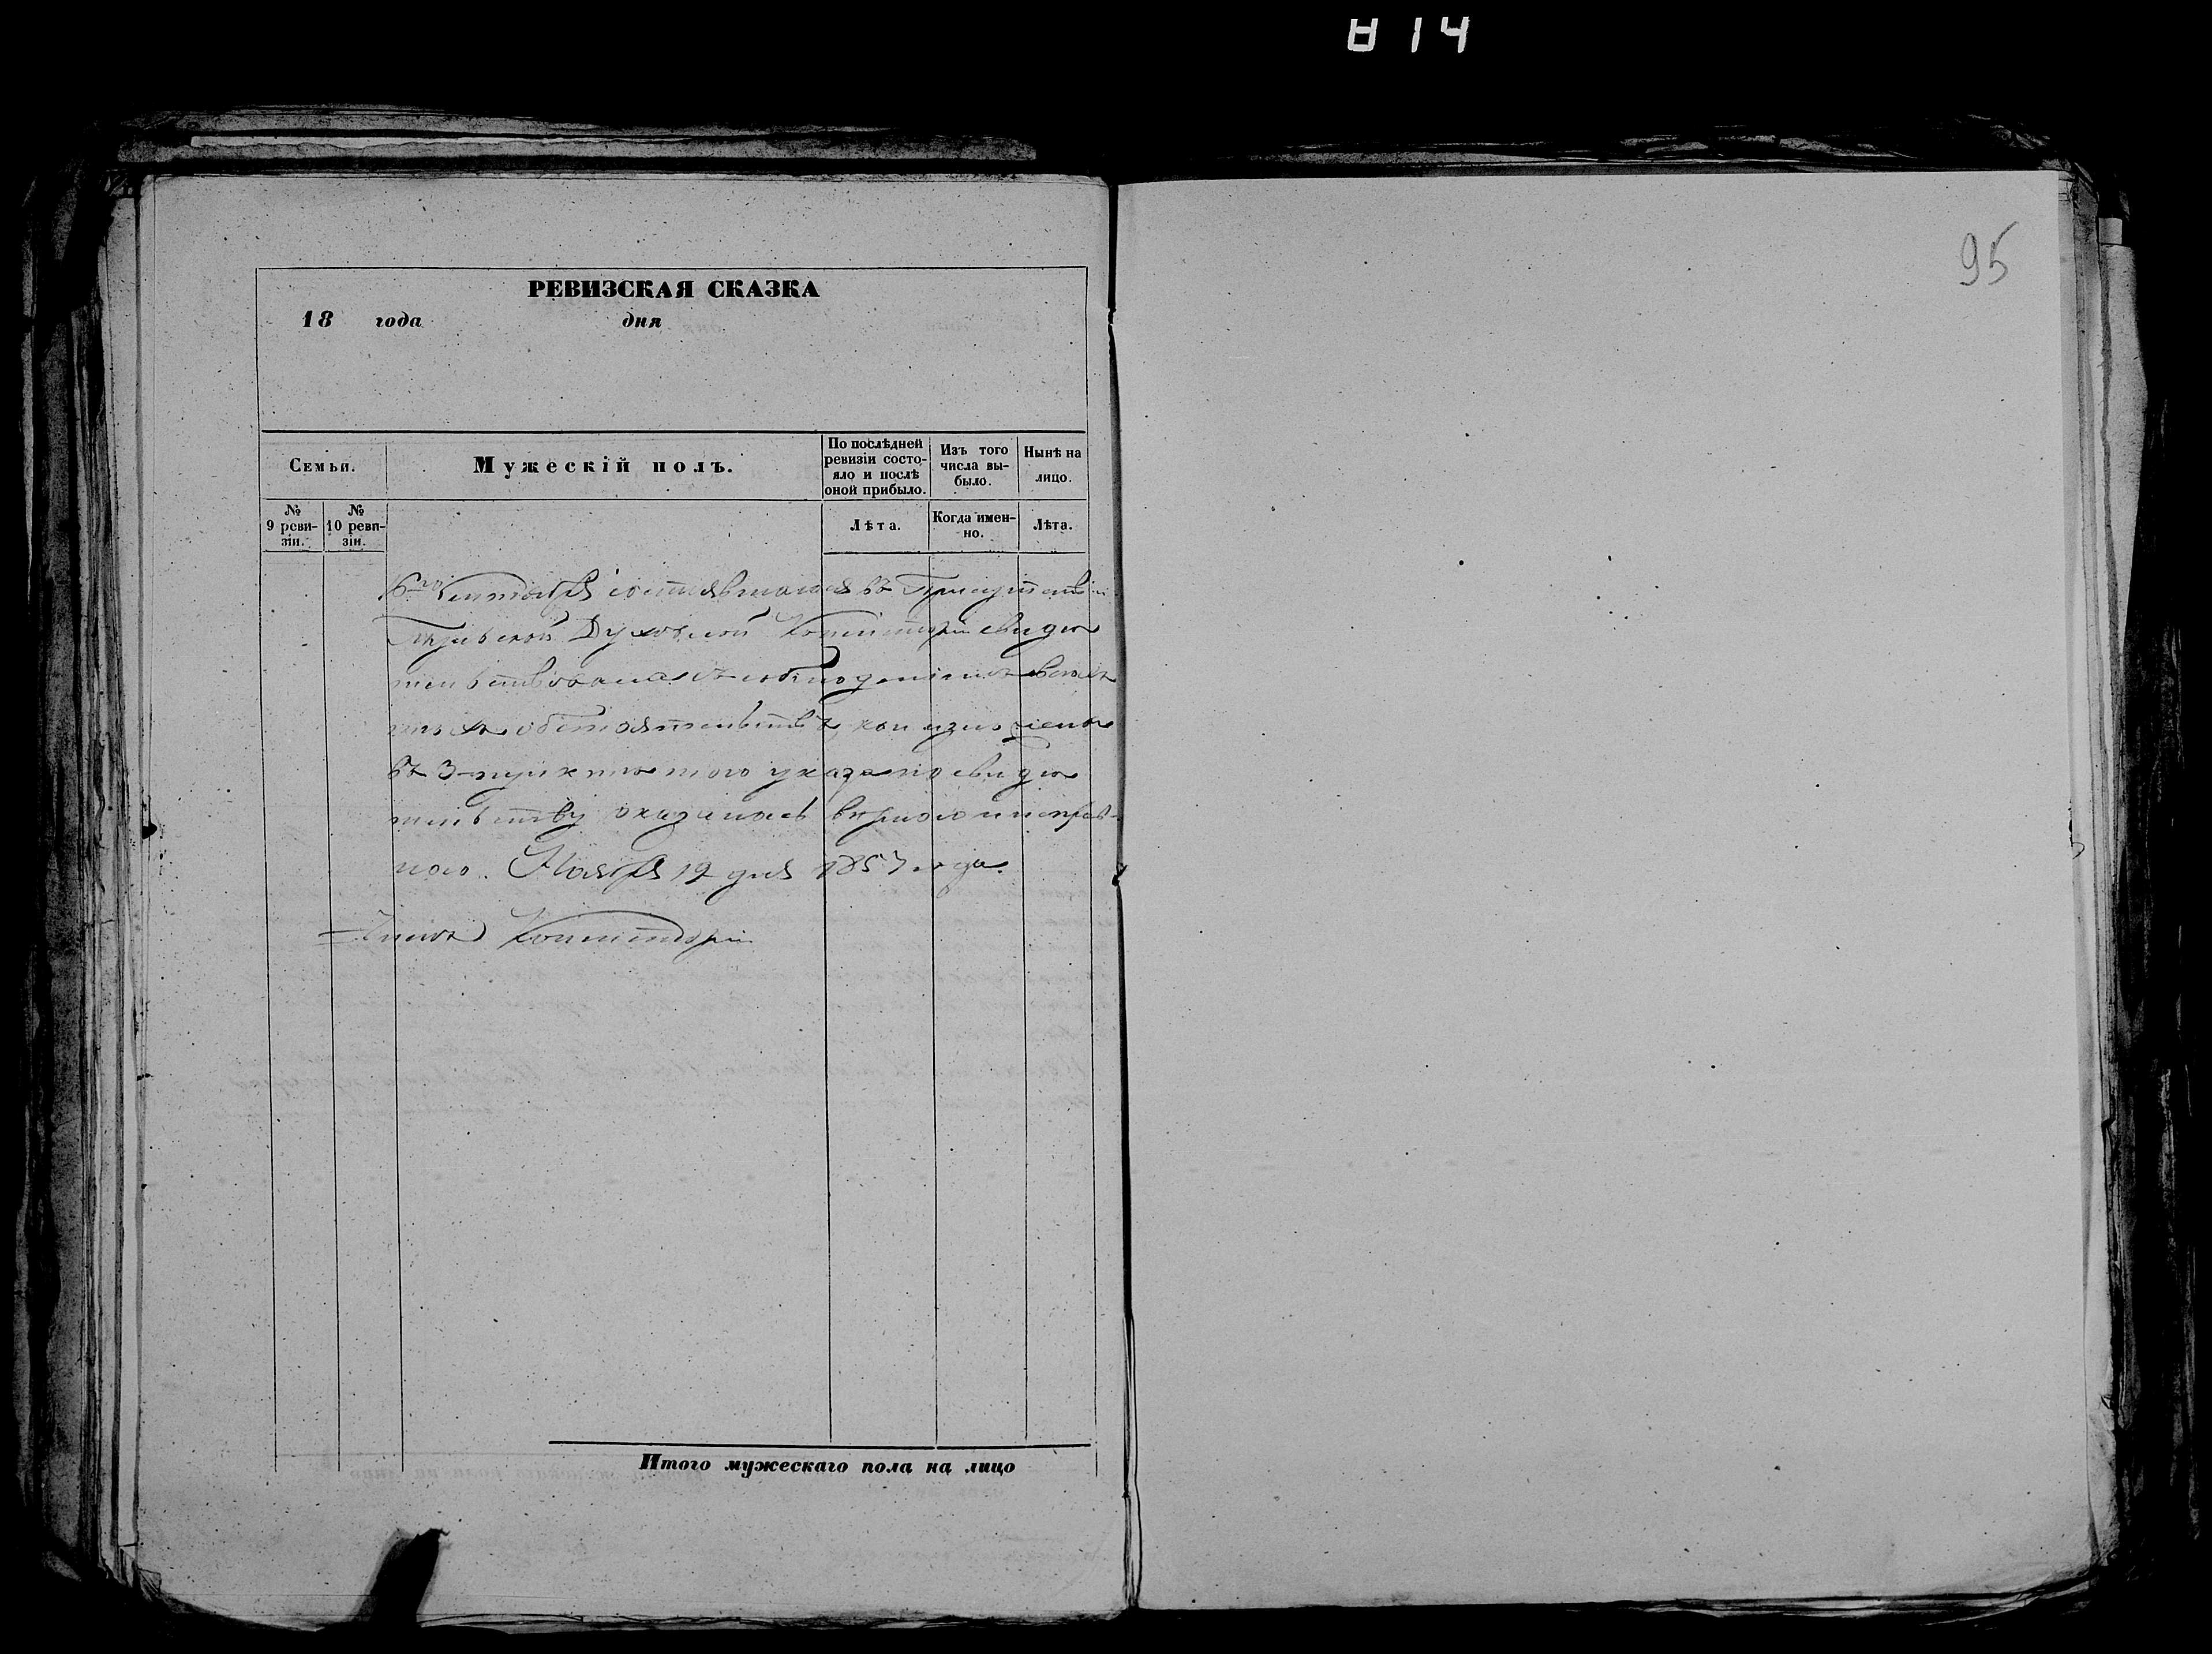 814
95
РЕВИЗСКАЯ СКАЗКА
18 года дня
Семьи.
Мужескій полъ.
По послѣдней ревизіи состояло и послѣ оной прибыло.
Изъ того числа вы-было.
Нынѣ на лицо.
№ 9 реви-зіи.
№ 10 реви-зіи.
Лѣта.
Когда имен-но.
Лѣта.
6го Сентября состоявшагося въ Присутствіи
Духовной Консисторіи свидѣ
тельствована съ соблюденіемъ всѣхъ
тѣхъ обстоятельствъ, кои изъяснены
въ 3-пунктѣ того указа по свидѣ
тельству оказалась вѣрною и исправ-
ною. Ноября 19 дня 1857 года.
Членъ Консисторіи
Итого мужескаго пола на лицо